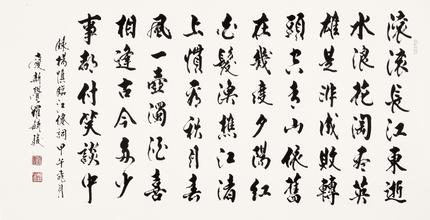 滚滚長江東逝
水浪花淘尽英
雄是非成敗轉
頭空青山依舊
在幾度夕陽紅
白髮漁樵江渚
上慣看秋月春
風一壺濁酒喜
相逢古今多少
事都付笑談中
錄楊慎臨江僊詞甲午秋月
愛新覺羅